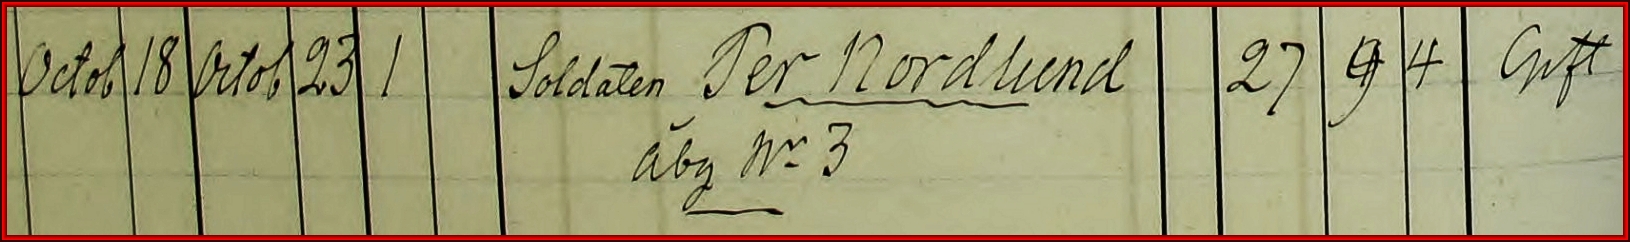 Octob 18 Octob 23 1 Soldaten Per Nordlund 27 9 4 Gift
Åby Nr 3